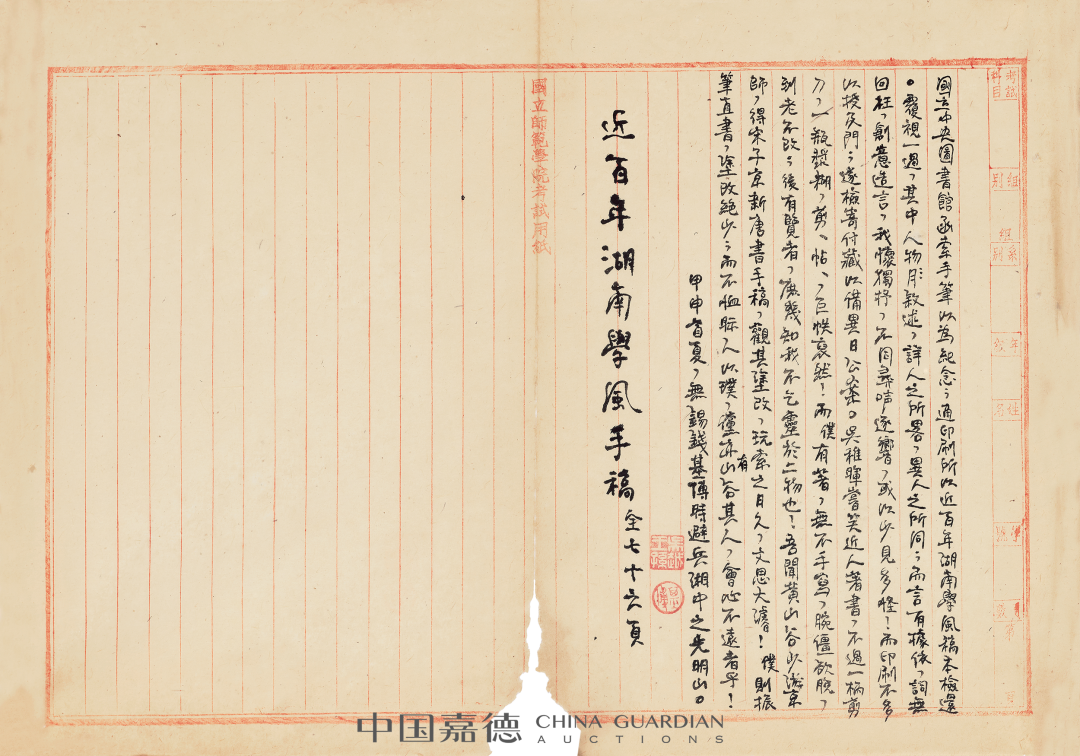 考試科目
組別
系別
組
年級
姓名
學號
分數
第 頁
國立中央圖書館函索手筆以為紀念；適印刷所以近百年湖南學風稿本檢還
。覆視一過，其中人物敘述，詳人之所畧，異人之所同；而言有據依，詞無
回枉，創意造言，我懷獨抒，不同尋声逐響，或以少見多怪！而印刷不多
以授及門；遂檢寄付藏以備異日公案。吳稚暉嘗笑近人著書，不過一柄剪
刀，一瓶漿糊，剪、帖、，巨帙裒然！而僕有著，無不手寫，腕僵欲脫，
到老不改；後有覽者，庶幾知我不乞靈於二物也！吾聞黃山谷少遊京
師，得宋子京新唐書手稿，觀其塗改，玩索之日久，文思大濬！僕則振
筆直書，塗改絕少；而不恤眎人以璞，儻亦有山谷其人，會心不遠者乎！
甲申首夏，無錫錢基博時避兵湘中之光明山。
近百年湖南學風手稿 全七十六頁
國立師範學院考試用紙
中国嘉德 CHINA GUARDIAN
AUCTIONS